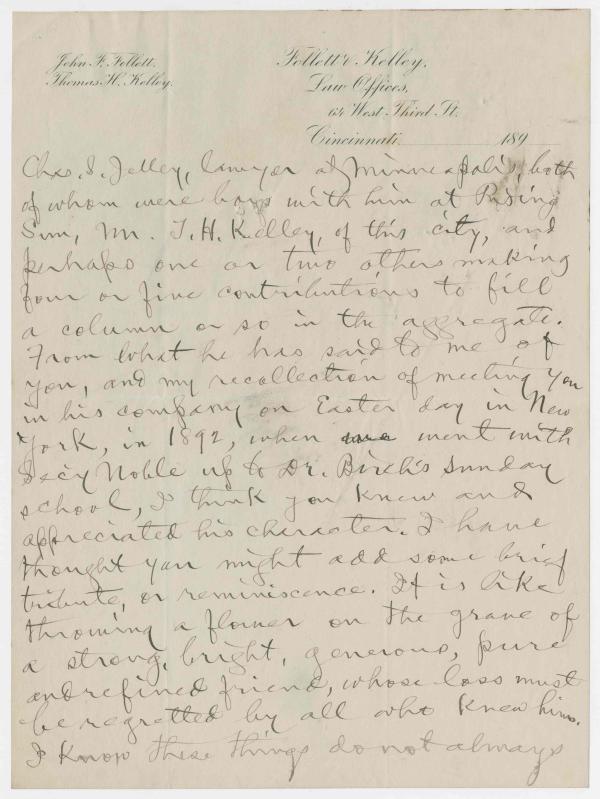 John F. Follett.
Thomas H. Kelley.
Follett & Kelley,
Law Offices,
64 West Third St.
Cincinnati 189
Chas. S. Jelley, lawyer at Minneapolis, both
of whom were boys with him at Rising
Sun, Mr. T. H. Kelley, of this city, and
perhaps one or two others making
four or five contributions to fill
a column or so in the aggregate.
From what he has said to me of
you, and my recollection of meeting you
in his company on Easter day in New
York, in 1892, when we went with
Sec'y Noble up to Dr. Birch's Sunday
school, I think you knew and
appreciated his character. I have
thought you might add some brief
tribute, or reminiscence. It is like
throwing a flower on the grave of
a strong, bright, generous, pure
and refined friend, whose loss must
be regretted by all who knew him.
I know these things do not always